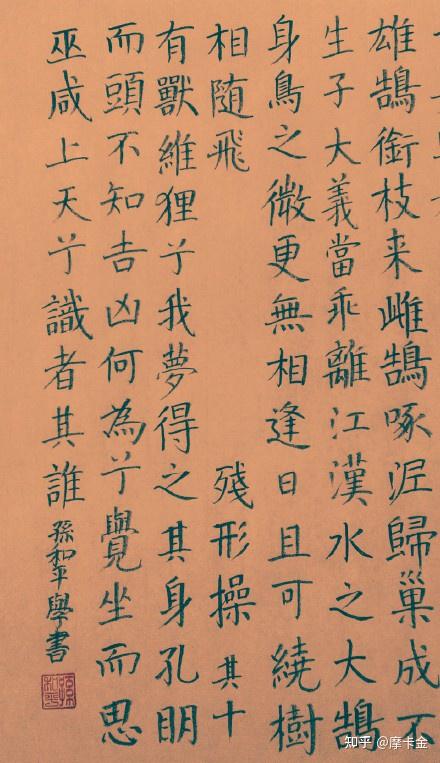 雄鵠銜枝来雌鵠啄泥歸巢成不
生子大義當乖離江漢水之大鵠
身鳥之微更無相逢日且可繞樹
相随飛 残形操 其十
有獸維狸兮我夢得之其身孔明
而頭不知吉凶何為兮覺坐而思
巫咸上天兮識者其誰 孫和平學書
知乎 @摩卡金